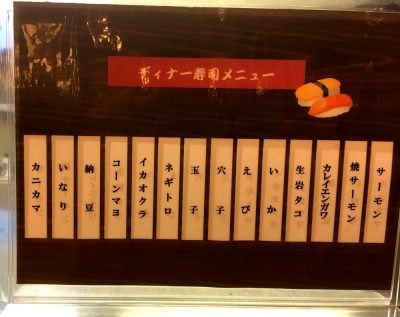 ディナー寿司メニュー
サーモン
焼サーモン
カレイエンガワ
生岩タコ
いか
えび
穴子
玉子
ネギトロ
イカオクラ
コーンマヨ
納豆
いなり
カニカマ